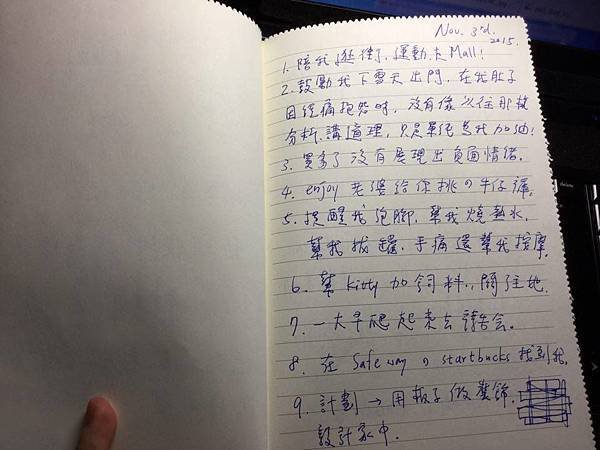 Nov. 3rd.
2015.
1. 陪我逛街,運動走Mall!
2. 鼓勵我下雪天出門,在我肚子
因經痛抱怨時,沒有像以往那樣
分析、講道理,只是單純為我加油!
3. 買多了沒有展現出負面情緒。
4. enjoy 老婆給你挑の牛仔褲。
5. 提醒我泡腳,幫我燒熱水,
幫我拔罐、手痛還幫我按摩。
6. 幫 kitty 加飼料、關注地
7. 一大早爬起來去禱告会。
8. 在 Safeway の startbucks 找到我。
9. 計劃 → 用板子做裝飾,
設計家中.